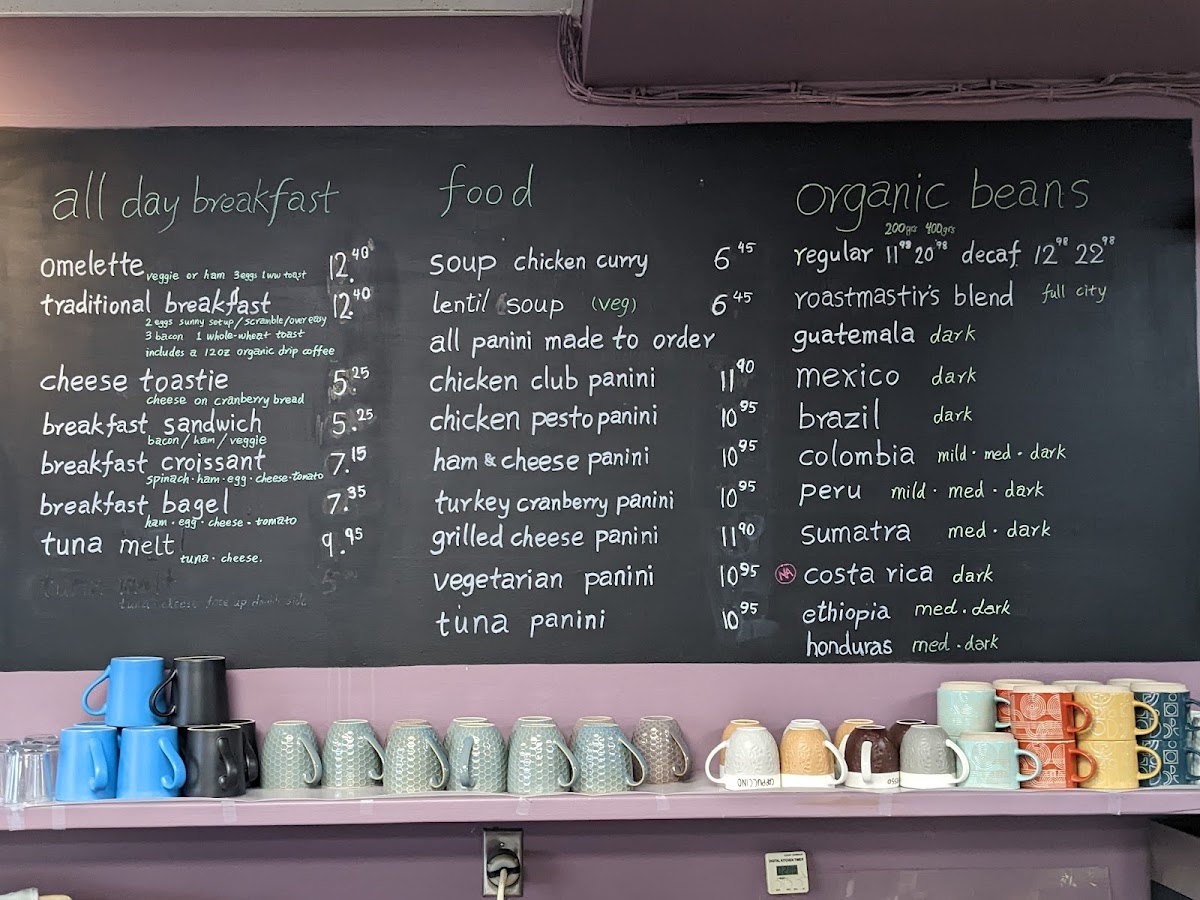 all day breakfast
omelette 12.40
veggie or ham 3eggs 1 ww toast
traditional breakfast 12.40
2 eggs sunny setup/scramble/over easy
3 bacon 1 whole-wheat toast
includes a 12oz organic drip coffee
cheese toastie 5.25
cheese on cranberry bread
breakfast sandwich 5.25
bacon/ham/veggie
breakfast croissant 7.15
spinach·ham·egg·cheese·tomato
breakfast bagel 7.35
ham·egg·cheese·tomato
tuna melt 9.95
tuna·cheese.
food
soup chicken curry 6 45
lentil soup (veg) 6 45
all panini made to order
chicken club panini 11 90
chicken pesto panini 10 95
ham & cheese panini 10 95
turkey cranberry panini 10 95
grilled cheese panini 11 90
vegetarian panini 10 95
tuna panini 10 95
organic beans
200grs 400grs
regular 11 99 20 98 decaf 12 98 22 98
roastmastir's blend full city
guatemala dark
mexico dark
brazil dark
colombia mild·med·dark
peru mild·med·dark
sumatra med·dark
NA costa rica dark
ethiopia med·dark
honduras med·dark
CAPPUCCINO
DIGITAL KITCHEN TIMER